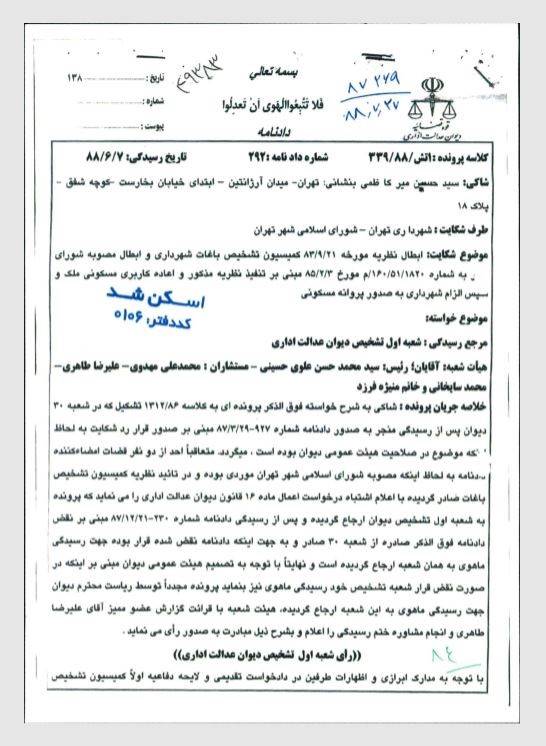 بسمه تعالی
فلا تتبعوا الهوی ان تعدلوا
دادنامه
قوه قضائیه
دیوان عدالت اداری
تاریخ : ۱۳۸
شماره :
پیوست :
۴۹۳۸۳
۸۷۲۷۹
۸۸,۷,۲۷
کلاسه پرونده : اتش/۳۳۹/۸۸ شماره دادنامه : ۲۹۲ تاریخ رسیدگی: ۸۸/۶/۷
شاکی: سید حسین میر کا ظمی بنشانی: تهران- میدان آرژانتین - ابتدای خیابان بخارست -کوچه شفق -
پلاک ۱۸
طرف شکایت : شهردا ری تهران - شورای اسلامی شهر تهران
موضوع شکایت: ابطال نظریه مورخه ۸۳/۹/۲۱ کمیسیون تشخیص باغات شهرداری و ابطال مصوبه شورای
به شماره ۱۶۰/۵۱/۱۸۲۰/م مورخ ۸۵/۲/۳ مبنی بر تنفیذ نظریه مذکور و اعاده کاربری مسکونی ملک و
سپس الزام شهرداری به صدور پروانه مسکونی
اسکن شد
کد دفتر: ۰۱۰۶
موضوع خواسته:
مرجع رسیدگی : شعبه اول تشخیص دیوان عدالت اداری
هیأت شعبه: آقایان؛ رئیس: سید محمد حسن علوی حسینی - مستشاران : محمدعلی مهدوی- علیرضا طاهری-
محمد سایخانی و خانم منیژه فرزد
خلاصه جریان پرونده : شاکی به شرح خواسته فوق الذکر پرونده ای به کلاسه ۱۳۱۲/۸۶ تشکیل که در شعبه ۳۰
دیوان پس از رسیدگی منجر به صدور دادنامه شماره ۹۲۷-۸۷/۳/۲۹ مبنی بر صدور قرار رد شکایت به لحاظ
که موضوع در صلاحیت هیئت عمومی دیوان بوده است ، میگردد. متعاقباً احد از دو نفر قضات امضاءکننده
دادنامه به لحاظ اینکه مصوبه شورای اسلامی شهر تهران موردی بوده و در تائید نظریه کمیسیون تشخیص
باغات صادر گردیده با اعلام اشتباه درخواست اعمال ماده ۱۶ قانون دیوان عدالت اداری را می نماید که پرونده
به شعبه اول تشخیص دیوان ارجاع گردیده و پس از رسیدگی دادنامه شماره ۲۳۰-۸۷/۱۲/۲۱ مبنی بر نقض
دادنامه فوق الذکر صادره از شعبه ۳۰ صادر و به جهت اینکه دادنامه نقض شده قرار بوده جهت رسیدگی
ماهوی به همان شعبه ارجاع گردیده است و نهایتاً با توجه به تصمیم هیئت عمومی دیوان مبنی بر اینکه در
صورت نقض قرار شعبه تشخیص خود رسیدگی ماهوی نیز بنماید پرونده مجدداً توسط ریاست محترم دیوان
جهت رسیدگی ماهوی به این شعبه ارجاع گردیده، هیئت شعبه با قرائت گزارش عضو ممیز آقای علیرضا
طاهری و انجام مشاوره ختم رسیدگی را اعلام و بشرح ذیل مبادرت به صدور رأی می نماید .
((رأی شعبه اول تشخیص دیوان عدالت اداری))
با توجه به مدارک ابرازی و اظهارات طرفین در دادخواست تقدیمی و لایحه دفاعیه اولاً کمیسیون تشخیص